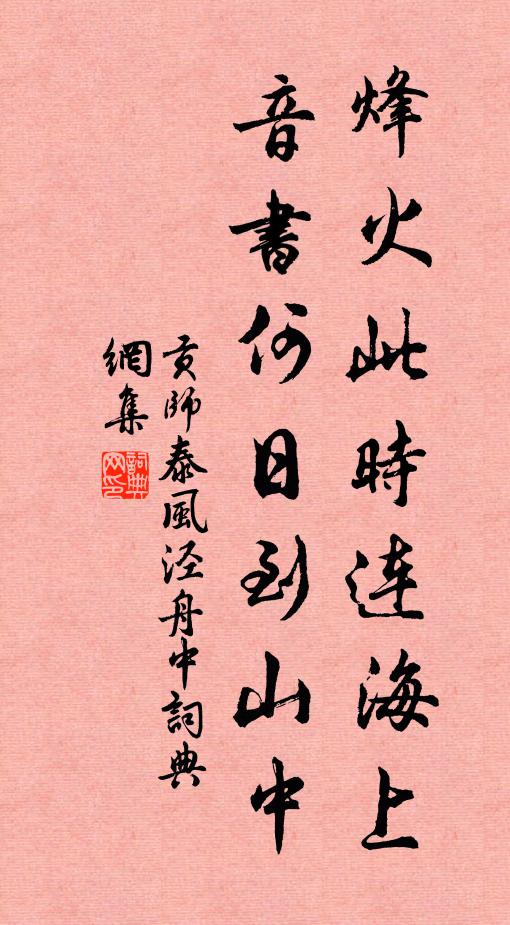 烽火此時連海上
音書何日到山中
貢師泰風泾舟中詞典
網集
詞典
网印